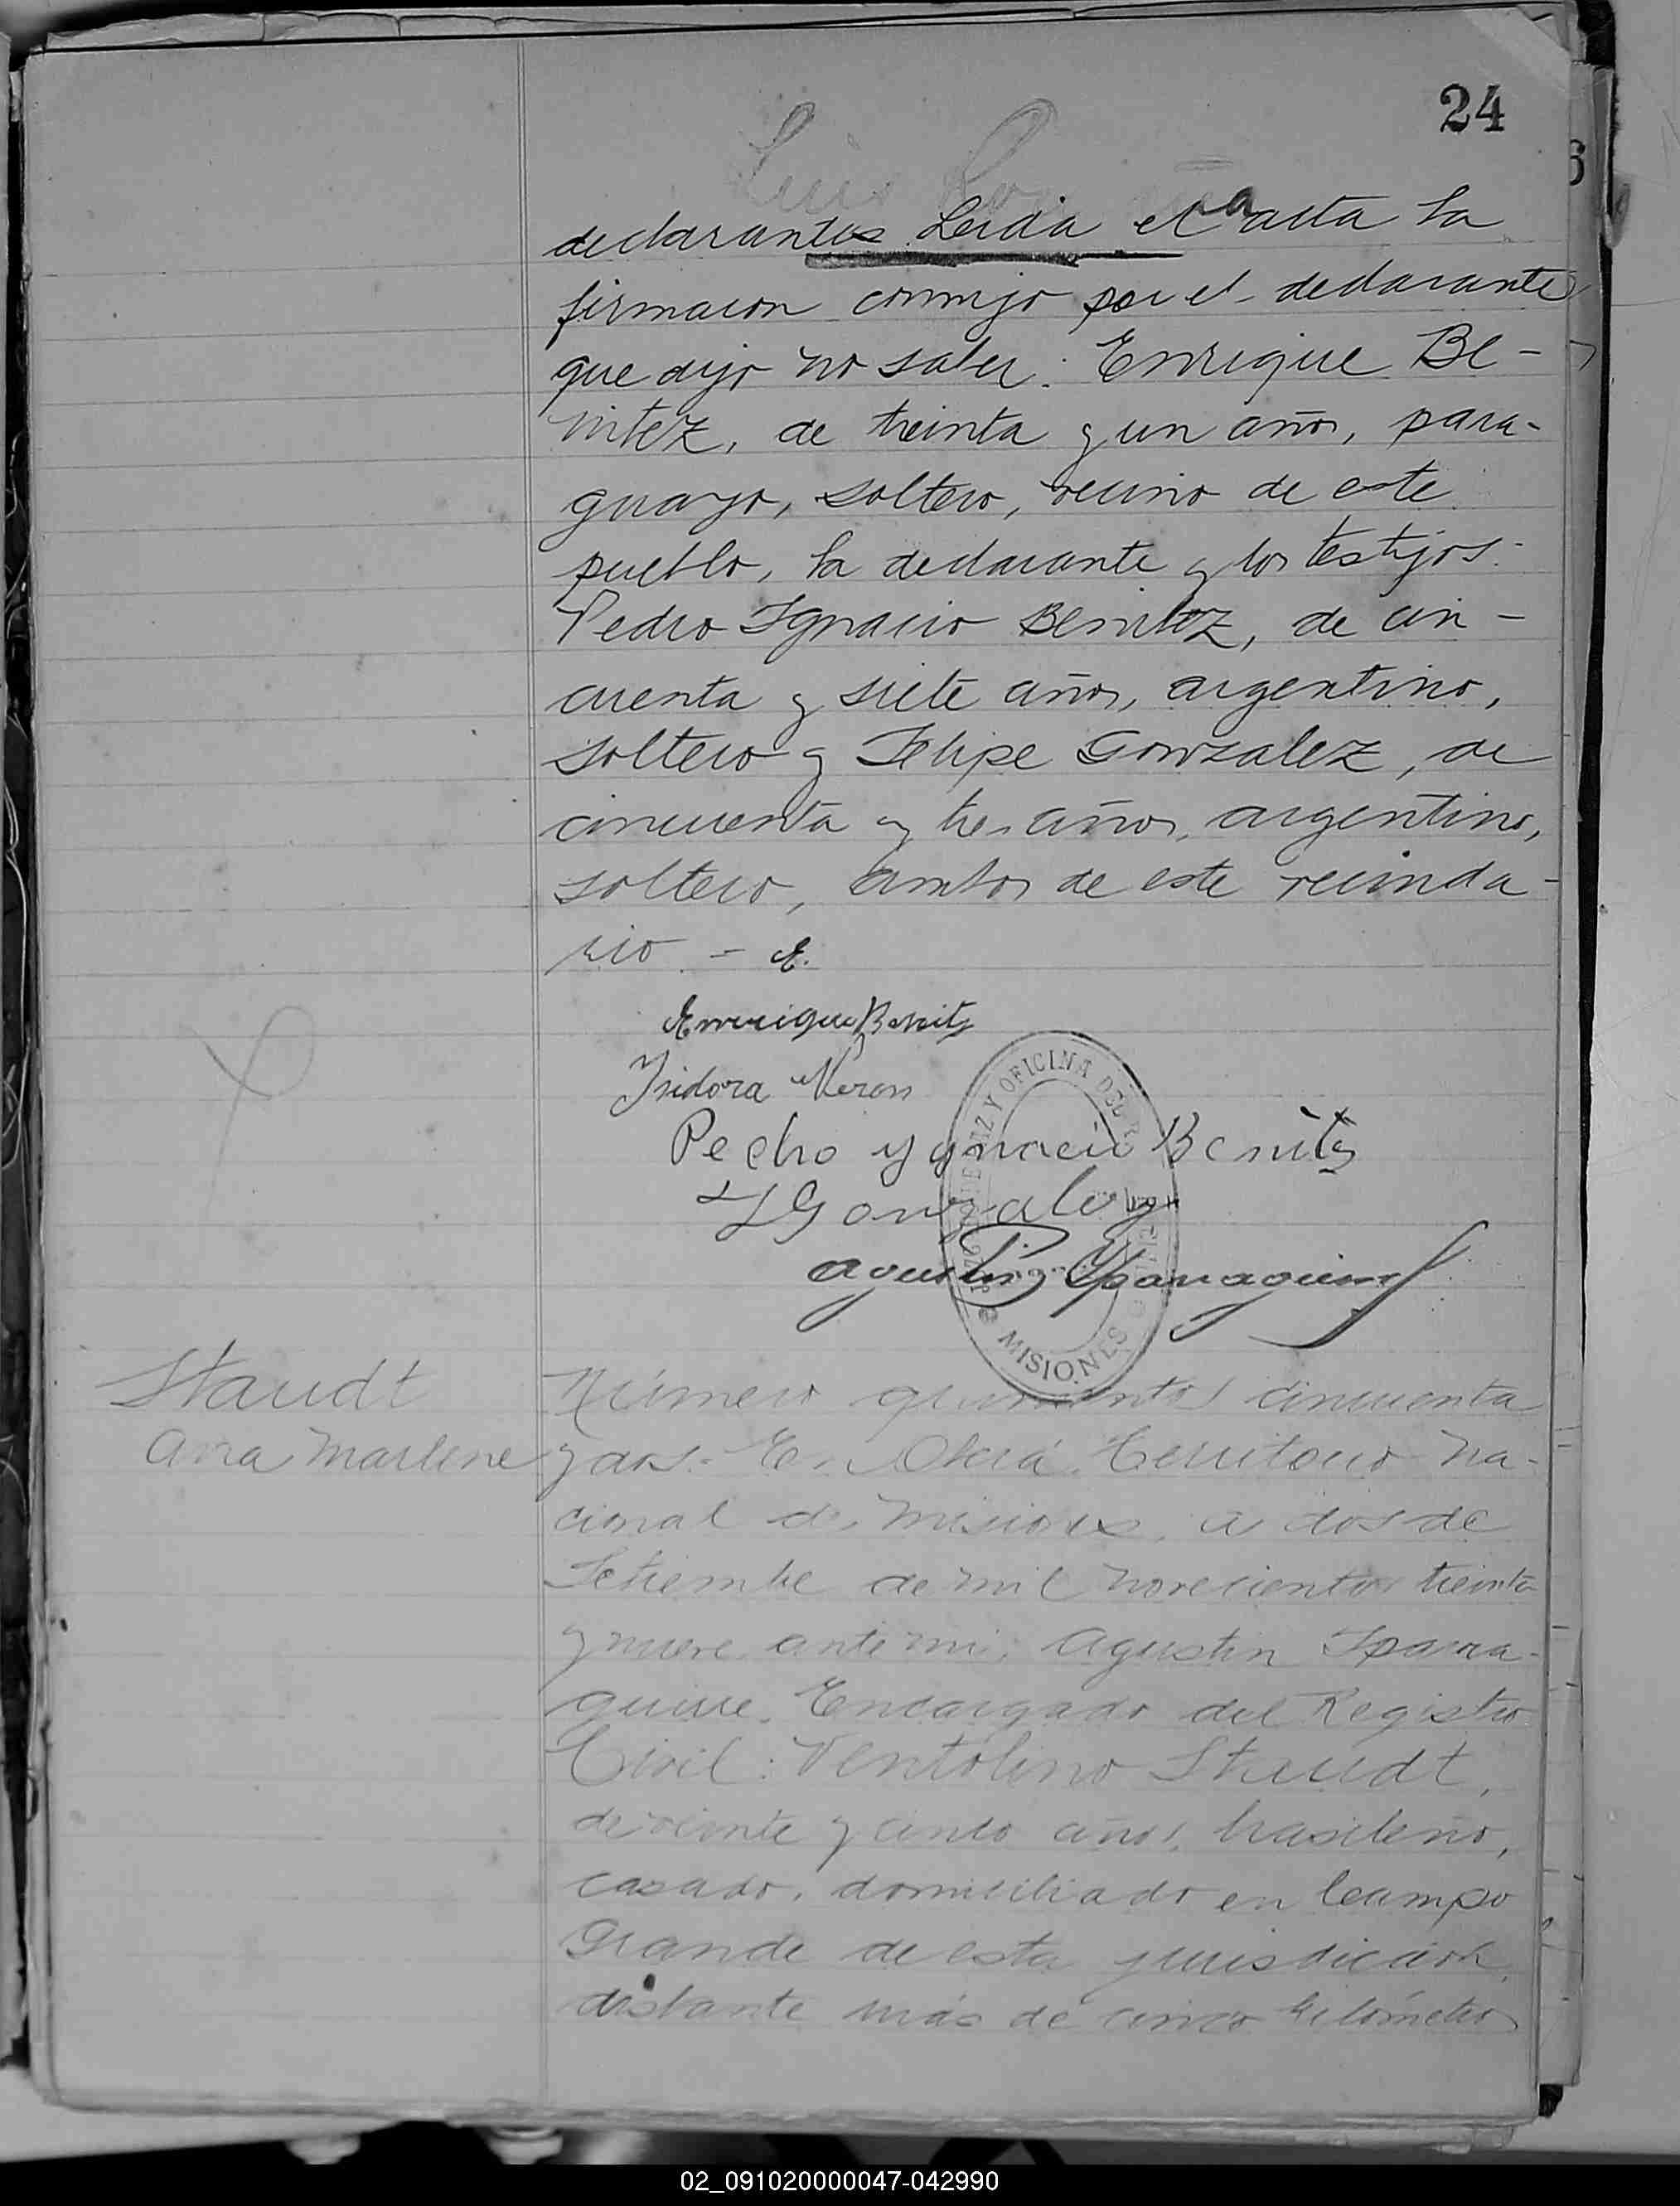 24
Luis
declarantes Leida el acta la
a
firmaron conmigo por el declarante
que dijo no saber: Enrique Be-
nitez, de treinta y un años, para-
guayo, soltero, vecino de este
pueblo, la declarante y los testigos:
Pedro Ignacio Benitez, de cin-
cuenta y siete años, argentino,
soltero y Felipe Gonzalez, de
cincuenta y tres años, argentino,
soltero, ambos de este vecinda-
rio. - E.
Enrrique Benitz
Isidora Neron
Pedro Ygnacio Benites
Gonzalez
Agustin Yparraguirre
OFICINA DEL
MISIONES
Staudt
Ana Marlene
Número quinientos cincuenta
y dos. En Oberá, Territorio Na-
cional de Misiones, a dos de
Setiembre de mil novecientos treinta
y nueve, ante mi, Agustin Iparra-
guirre, Encargado del Registro
Civil: Ventolino Staudt,
de veinte y cinco años, brasileño,
casado, domiciliado en Campo
Grande de esta jurisdicción,
distante más de cinco kilómetros
02_091020000047-042990